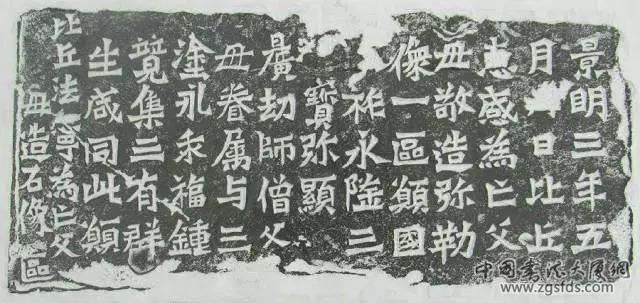 景明三年五
月日比丘
惠感為亡父
母敬造弥勒
像一區願國
祚永隆三
寶弥顯
曠劫師僧父
母眷属与三
塗永乖福鍾
竟集三有群
生咸同此願
比丘法寧為亡父
母造石像區
中國書法大厦網
www.zgsfds.com